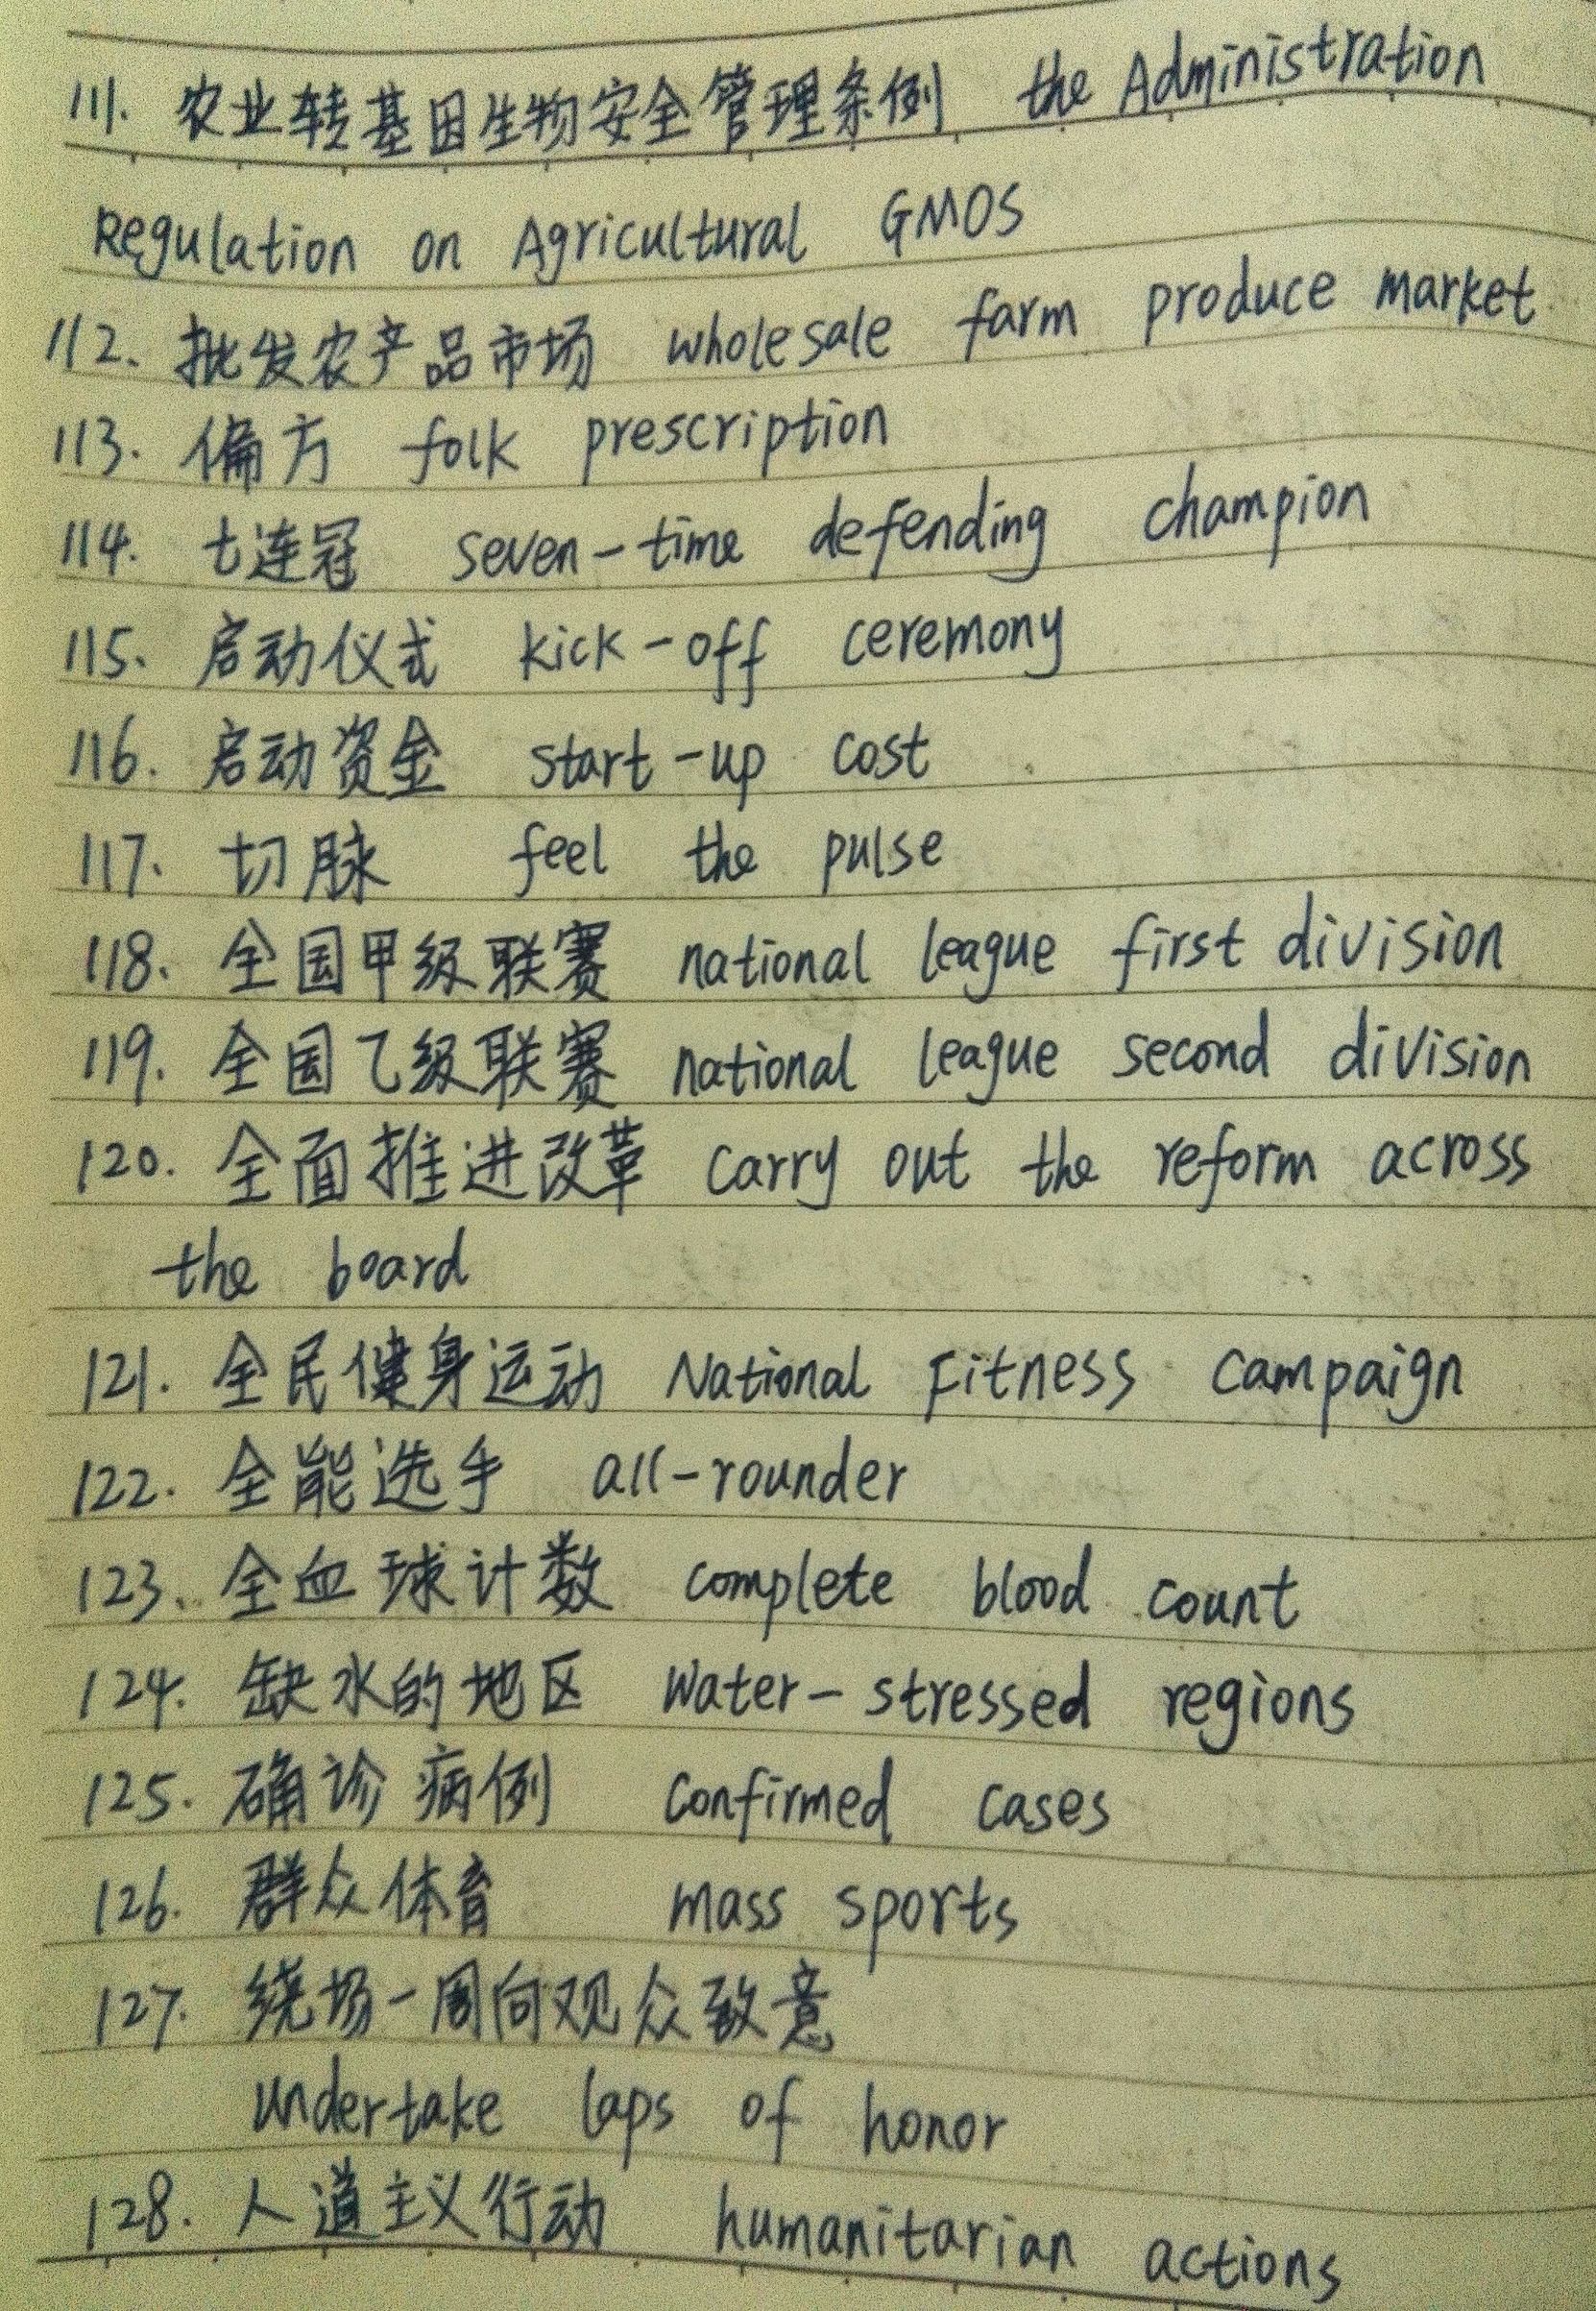 111. 农业转基因生物安全管理条例 the Administration
Regulation on Agricultural GMOS
112. 批发农产品市场 wholesale farm produce market
113. 偏方 folk prescription
114. 七连冠 seven-time defending champion
115. 启动仪式 kick-off ceremony
116. 启动资金 start-up cost
117. 切脉 feel the pulse
118. 全国甲级联赛 national league first division
119. 全国乙级联赛 national league second division
120. 全面推进改革 carry out the reform across
the board
121. 全民健身运动 National Fitness campaign
122. 全能选手 all-rounder
123. 全血球计数 complete blood count
124. 缺水的地区 water-stressed regions
125. 确诊病例 confirmed cases
126. 群众体育 mass sports
127. 绕场一周向观众致意
undertake laps of honor
128. 人道主义行动 humanitarian actions